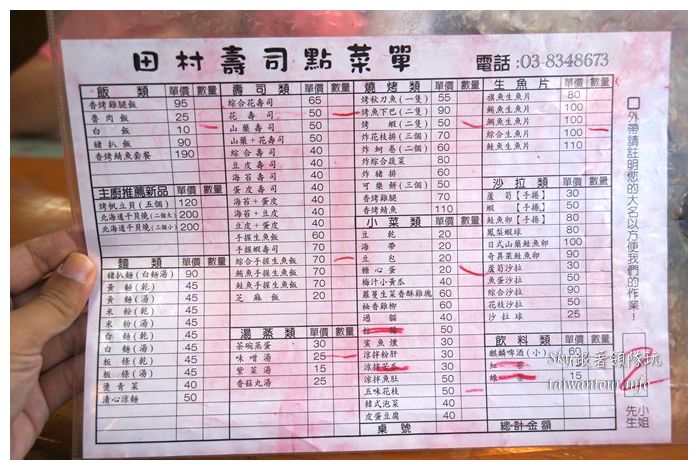 田村壽司點菜單
電話:03-8348673
飯類 單價 數量
香烤雞腿飯 95
魯肉飯 25
白飯 10
豬扒飯 90
香烤鯖魚套餐 190
主廚推薦新品 單價 數量
烤帆立貝(五個) 120
北海道干貝燒(二個大) 200
北海道干貝燒(三個小) 200
麵類 單價 數量
豬扒麵(白麵湯) 90
黃麵(乾) 45
黃麵(湯) 45
米粉(乾) 45
米粉(湯) 45
白麵(乾) 45
白麵(湯) 45
板條(乾) 45
板條(湯) 45
燙青菜 40
清心涼麵 50
壽司類 單價 數量
綜合花壽司 65
花壽司 50
山藥壽司 50
山藥+花壽司 50
綜合壽司 40
豆皮壽司 40
海苔壽司 40
蛋皮壽司 40
海苔+蛋皮 40
海苔+豆皮 40
豆皮+蛋皮 40
手握生魚飯 60
手握蝦壽司 70
綜合手握生魚飯 70
鮪魚手握生魚飯 70
鮭魚手握生魚飯 70
芝麻飯 20
湯蒸類 單價 數量
茶碗蒸蛋 30
味噌湯 25
紫菜湯 15
香菇丸湯 25
燒烤類 單價 數量
烤秋刀魚(一隻) 55
烤魚下巴(二隻) 90
烤蝦(二隻) 50
炸花枝排(三個) 70
炸蚵卷(二個) 60
炸綜合蔬菜 80
炸豬排 60
可樂餅(三個) 50
香烤雞腿 70
香烤鯖魚 110
小菜類 單價 數量
豆乾 20
海帶 20
豆包 20
糖心蛋 20
梅汁小黃瓜 40
羅蔓生菜香酥雞塊 60
柚香雞柳 60
過貓 40
粉腸 50
鯊魚煙 50
涼拌粉肝 50
涼拌苦瓜 50
涼拌魚肚 50
五味花枝 50
韓式泡菜 40
皮蛋豆腐 40
桌號
生魚片 單價 數量
旗魚生魚片 80
鮪魚生魚片 100
鯛魚生魚片 100
綜合生魚片 100
鮭魚生魚片 110
沙拉類 單價 數量
蘆荀【手捲】 30
蝦【手捲】 50
鮭魚卵【手捲】 80
鳳梨蝦球 80
日式山藥鮭魚卵 100
奇異果鮭魚卵 90
蘆荀沙拉 50
魚蛋沙拉 50
綜合沙拉 90
花枝沙拉 50
沙拉球 25
飲料類 單價 數量
麒麟啤酒(小) 60
紅茶 15
綠茶 15
總計金額
□外帶請註明您的大名以方便我們的作業!
小姐
先生
SKY跟著領隊玩
taiwantour.info